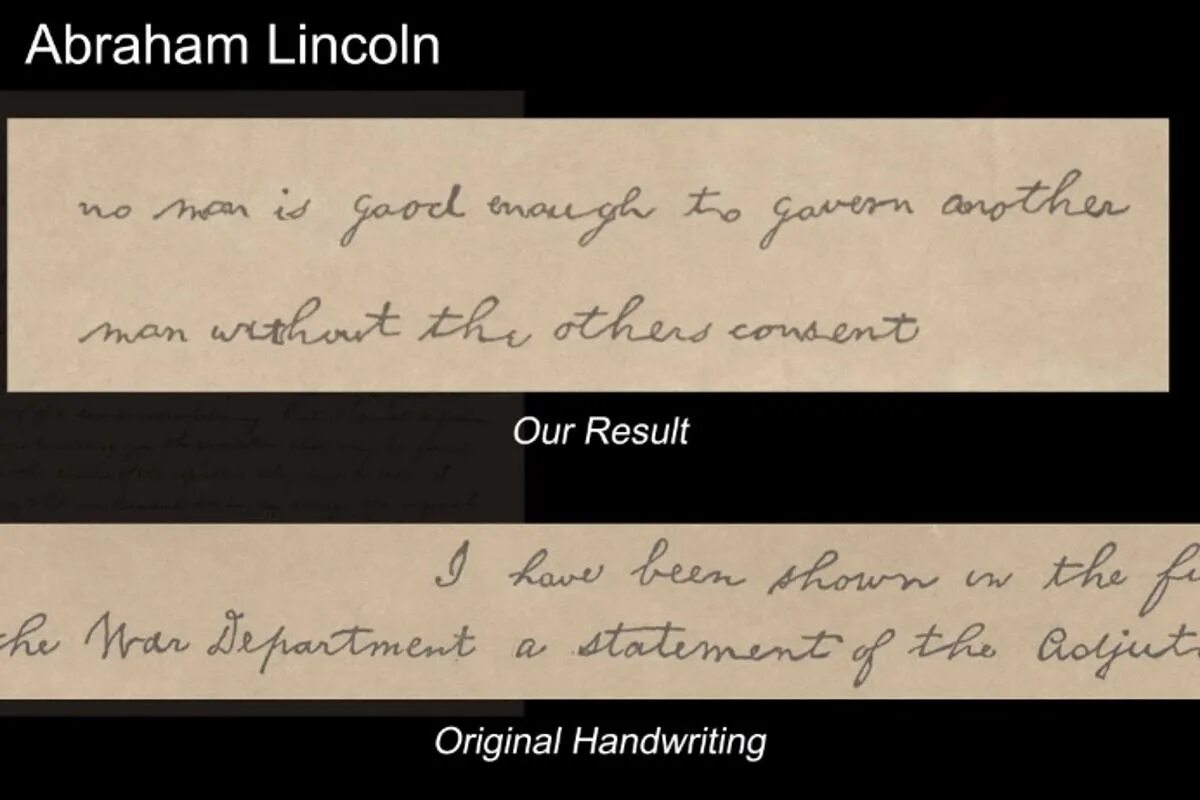 Abraham Lincoln
no man is good enough to govern another
man without the others consent
Our Result
I have been shown in the
the War Department a statement of the
Original Handwriting